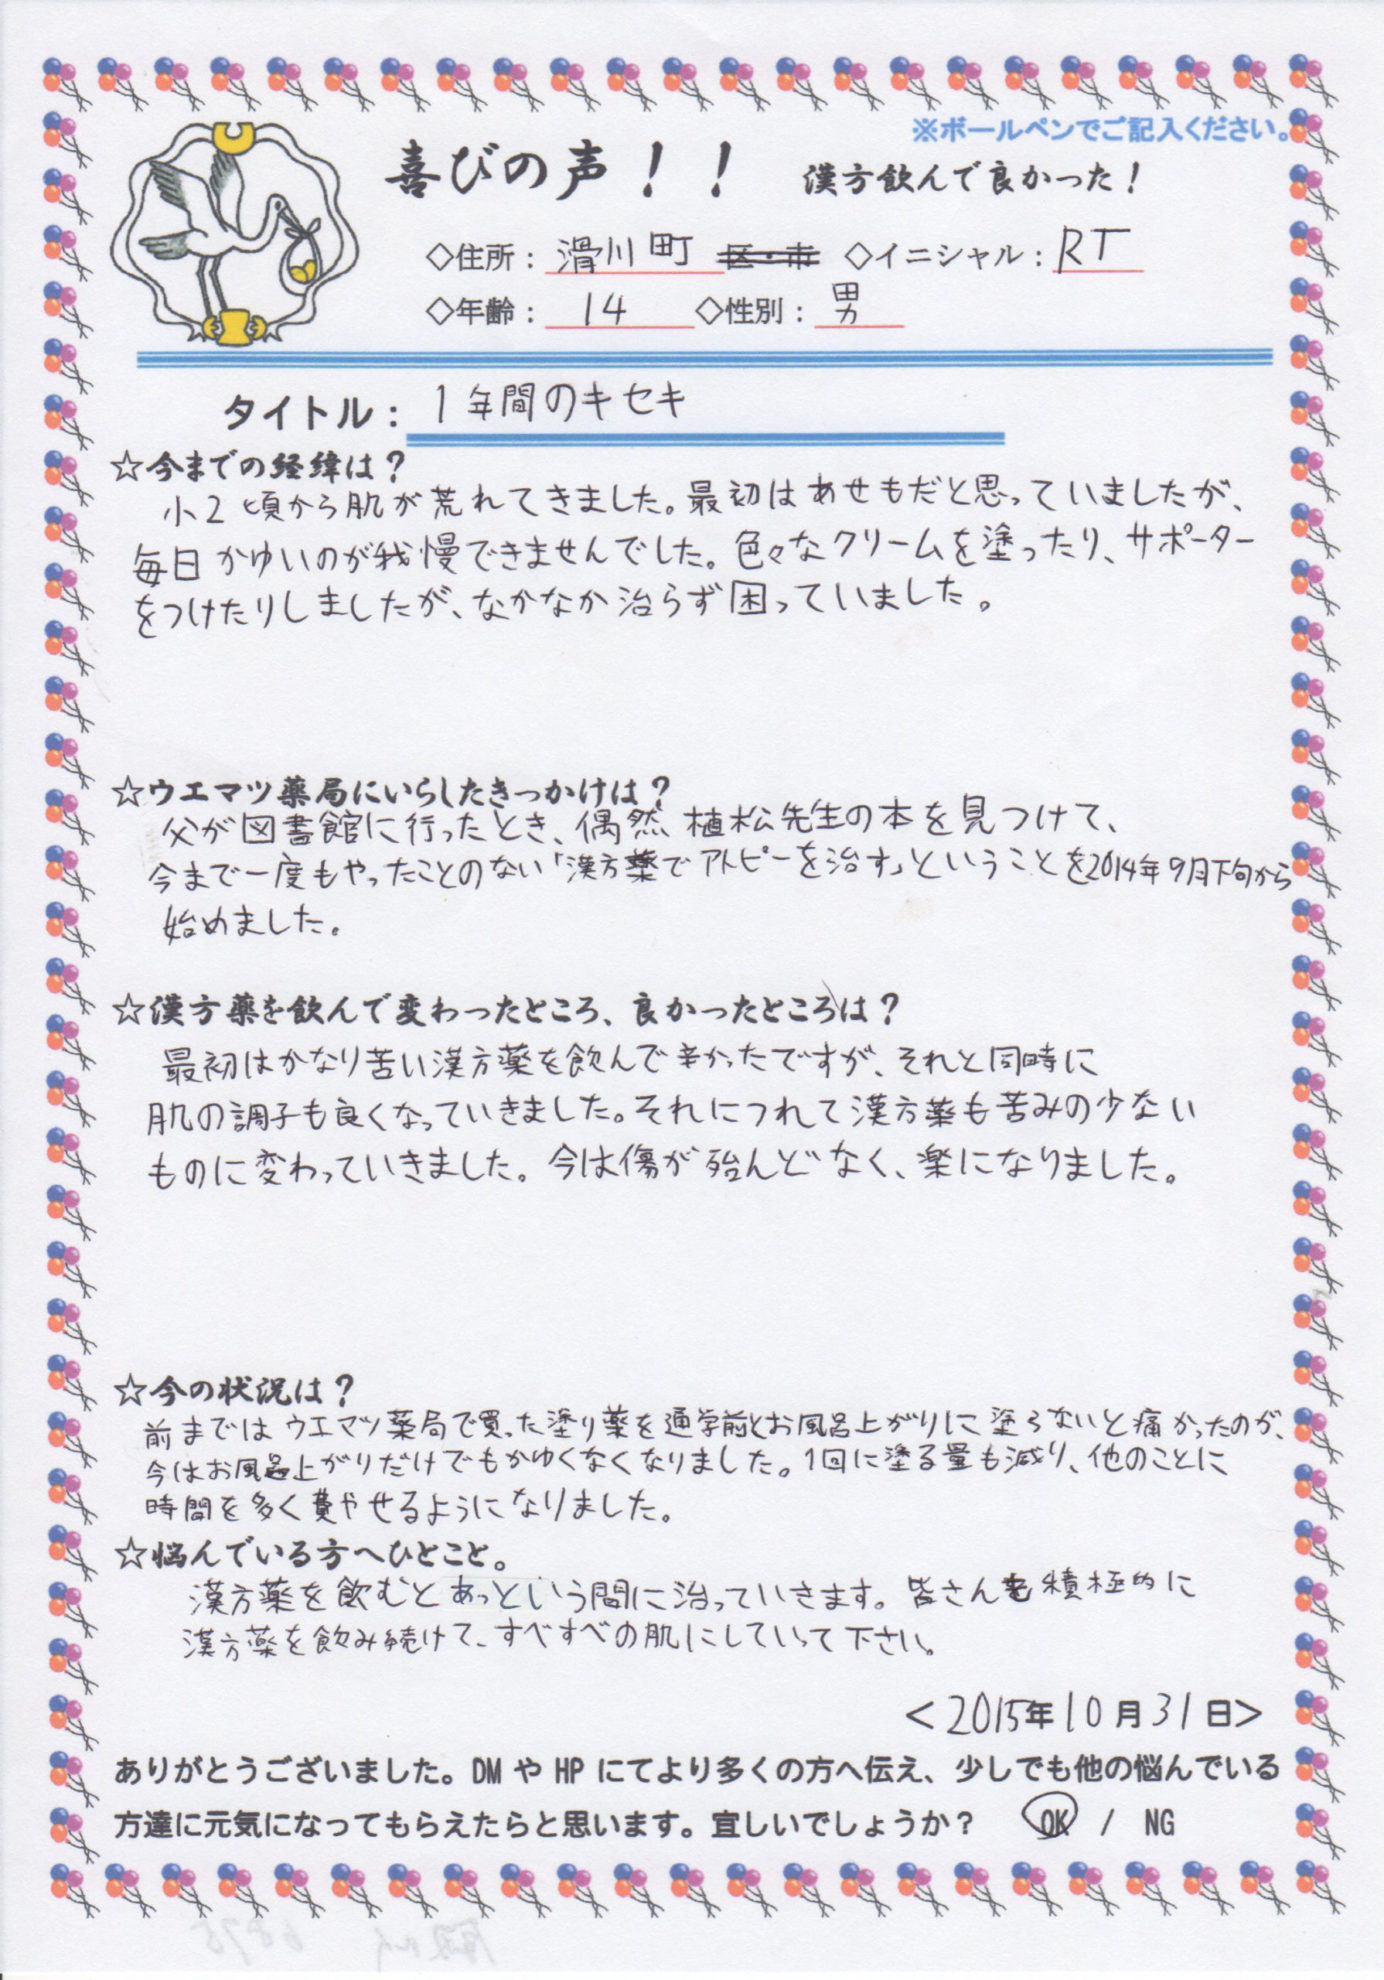 ※ボールペンでご記入ください。
喜びの声！！　漢方飲んで良かった！
◇住所：滑川町 区・市 ◇イニシャル：RT
◇年齢：14 ◇性別：男
タイトル：1年間のキセキ
☆今までの経緯は？
小2頃から肌が荒れてきました。最初はあせもだと思っていましたが、
毎日かゆいのが我慢できませんでした。色々なクリームを塗ったり、サポーター
をつけたりしましたが、なかなか治らず困っていました。
☆ウエマツ薬局にいらしたきっかけは？
父が図書館に行ったとき、偶然 植松先生の本を見つけて、
今まで一度もやったことのない「漢方薬でアトピーを治す」ということを2014年9月下旬から
始めました。
☆漢方薬を飲んで変わったところ、良かったところは？
最初はかなり苦い漢方薬を飲んで辛かったですが、それと同時に
肌の調子も良くなっていきました。それにつれて漢方薬も苦みの少ない
ものに変わっていきました。今は傷が殆んどなく、楽になりました。
☆今の状況は？
前まではウエマツ薬局で買った塗り薬を通学前とお風呂上がりに塗らないと痛かったのが、
今はお風呂上がりだけでもかゆくなくなりました。1回に塗る量も減り、他のことに
時間を多く費やせるようになりました。
☆悩んでいる方へひとこと。
漢方薬を飲むとあっという間に治っていきます。皆さんも積極的に
漢方薬を飲み続けて、すべすべの肌にしていって下さい。
＜2015年10月31日＞
ありがとうございました。DMやHPにてより多くの方へ伝え、少しでも他の悩んでいる
方達に元気になってもらえたらと思います。宜しいでしょうか？　OK / NG